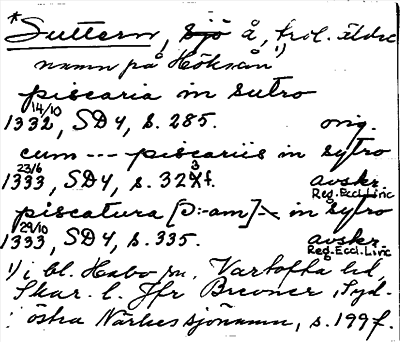 *Suttern, sjö å, trol. äldre
namn på Höksån 1)
piscaria in sutro
14/10
1332, SD4, s. 285. orig.
cum --- piscariis in sytro
23/6
1333, SD4, s. 323f. avskr.
Reg.Eccl.Linc
piscatura [D:-am] in sytro
29/10
1333, SD4, s. 335. avskr.
Reg.Eccl.Linc
1) i bl. Habo sn, Vartofta hd,
Skar. l. Jfr Brevner, Syd-
östra Närkes sjönamn, s. 199f.